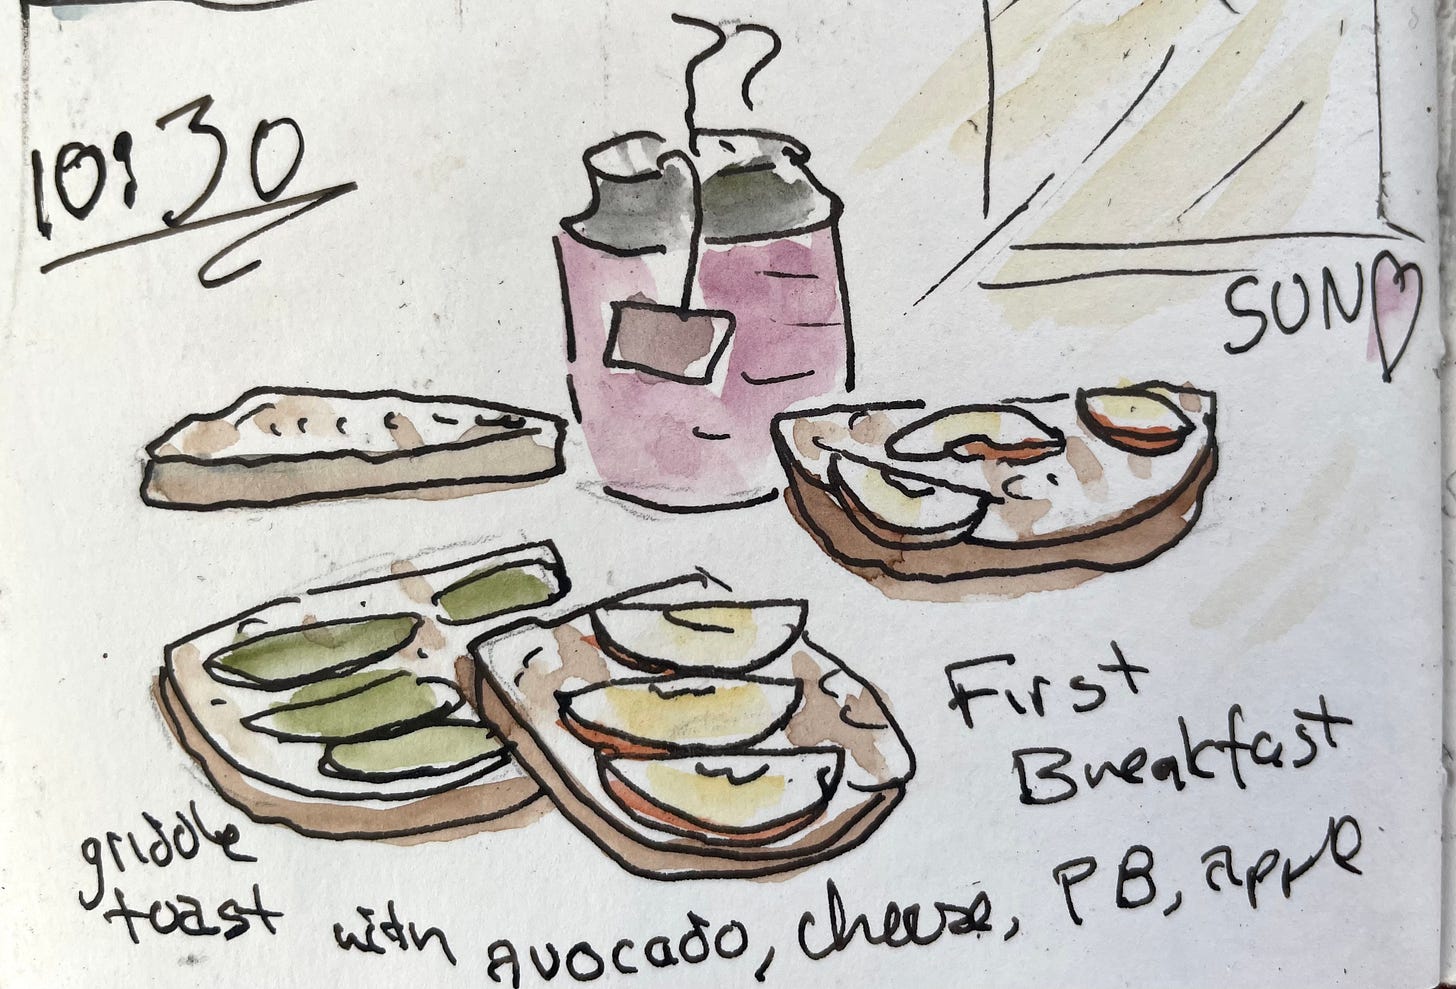 10:30
SUN
First
Breakfast
griddle
toast with avocado, cheese, PB, apple